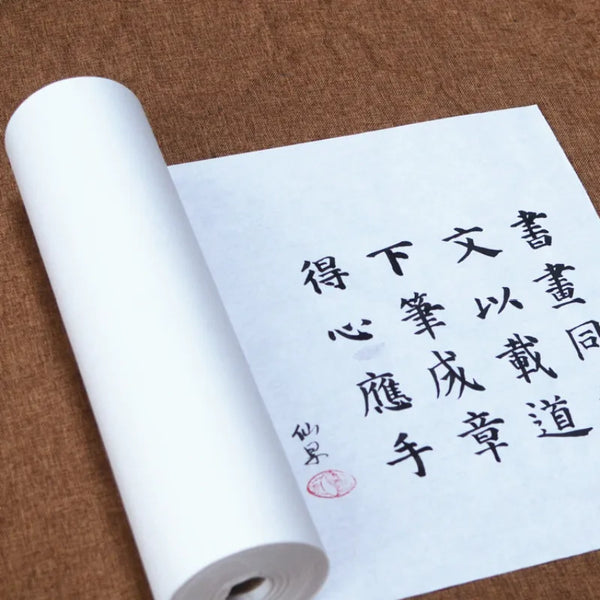 書畫同
文以載道
下筆成章
得心應手
仙皋